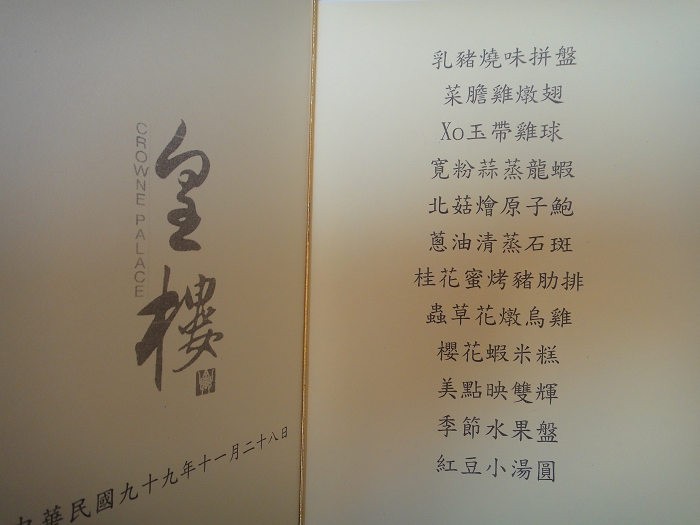 皇樓
CROWNE PALACE
中華民國九十九年十一月二十八日
乳豬燒味拼盤
菜膽雞燉翅
Xo玉帶雞球
寬粉蒜蒸龍蝦
北菇燴原子鮑
蔥油清蒸石斑
桂花蜜烤豬肋排
蟲草花燉烏雞
櫻花蝦米糕
美點映雙輝
季節水果盤
紅豆小湯圓